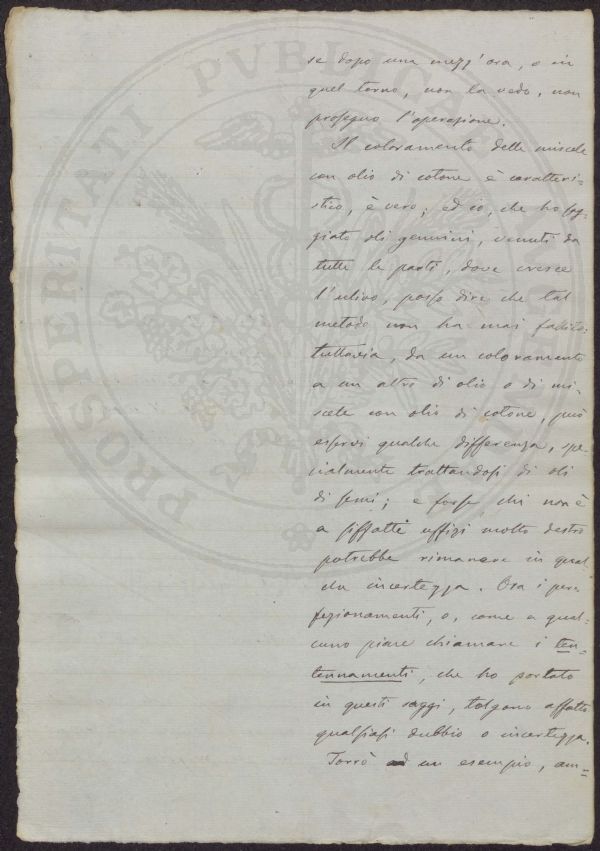 PROSPERITATI PVBLICAE
se dopo una mezz'ora, o in
quel torno, non la vedo, non
proseguo l'operazione.
Il coloramento delle miscele
con olio di cotone è caratteri-
stico, è vero; ed io, che ho sag-
giato oli genuini, venuti da
tutte le parti, dove cresce
l'ulivo, posso dire che tal
metodo non ha mai fallito:
tuttavia, da un coloramento
a un altro di olio o di mi-
scele con olio di cotone, può
esservi qualche differenza, spe-
cialmente trattandosi di oli
di semi; e forse chi non è
a siffatti uffizi molto destro
potrebbe rimanere in qual-
che incertezza. Ora i per-
fezionamenti, o, come a qual-
cuno piace chiamare i ten-
tennamenti, che ho portato
in questi saggi, tolgono affatto
qualsiasi dubbio o incertezza.
Torrò ad un esempio, am-